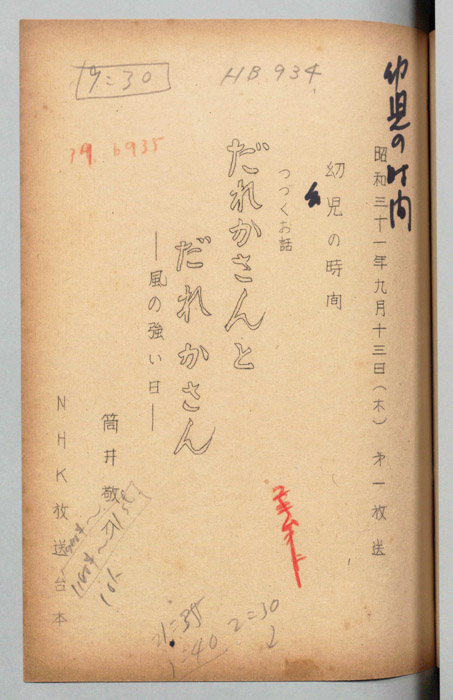 幼児の時間
昭和三十一年九月十三日(木) 第一放送
幼児の時間
つづくお話
だれかさんと
だれかさん
―風の強い日―
筒井敬介
NHK放送台本
19:30
HB 934
19. 6935
1:40
2=30